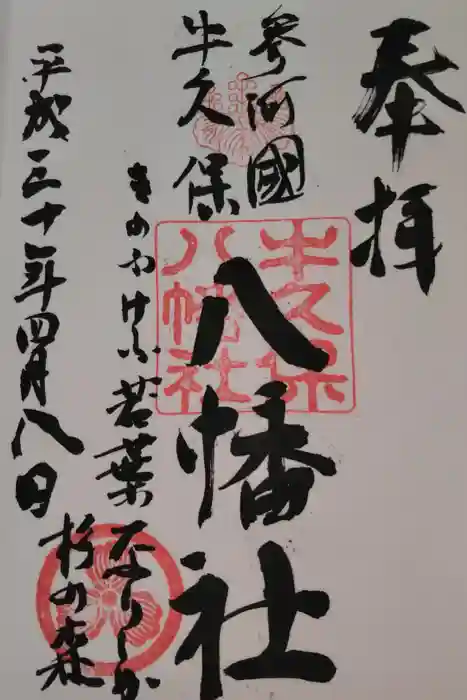 奉拝
参河國
牛久保
八幡社
牛久保
八幡社
きのふけふ若葉なりしか
杉の森
平成三十年四月八日